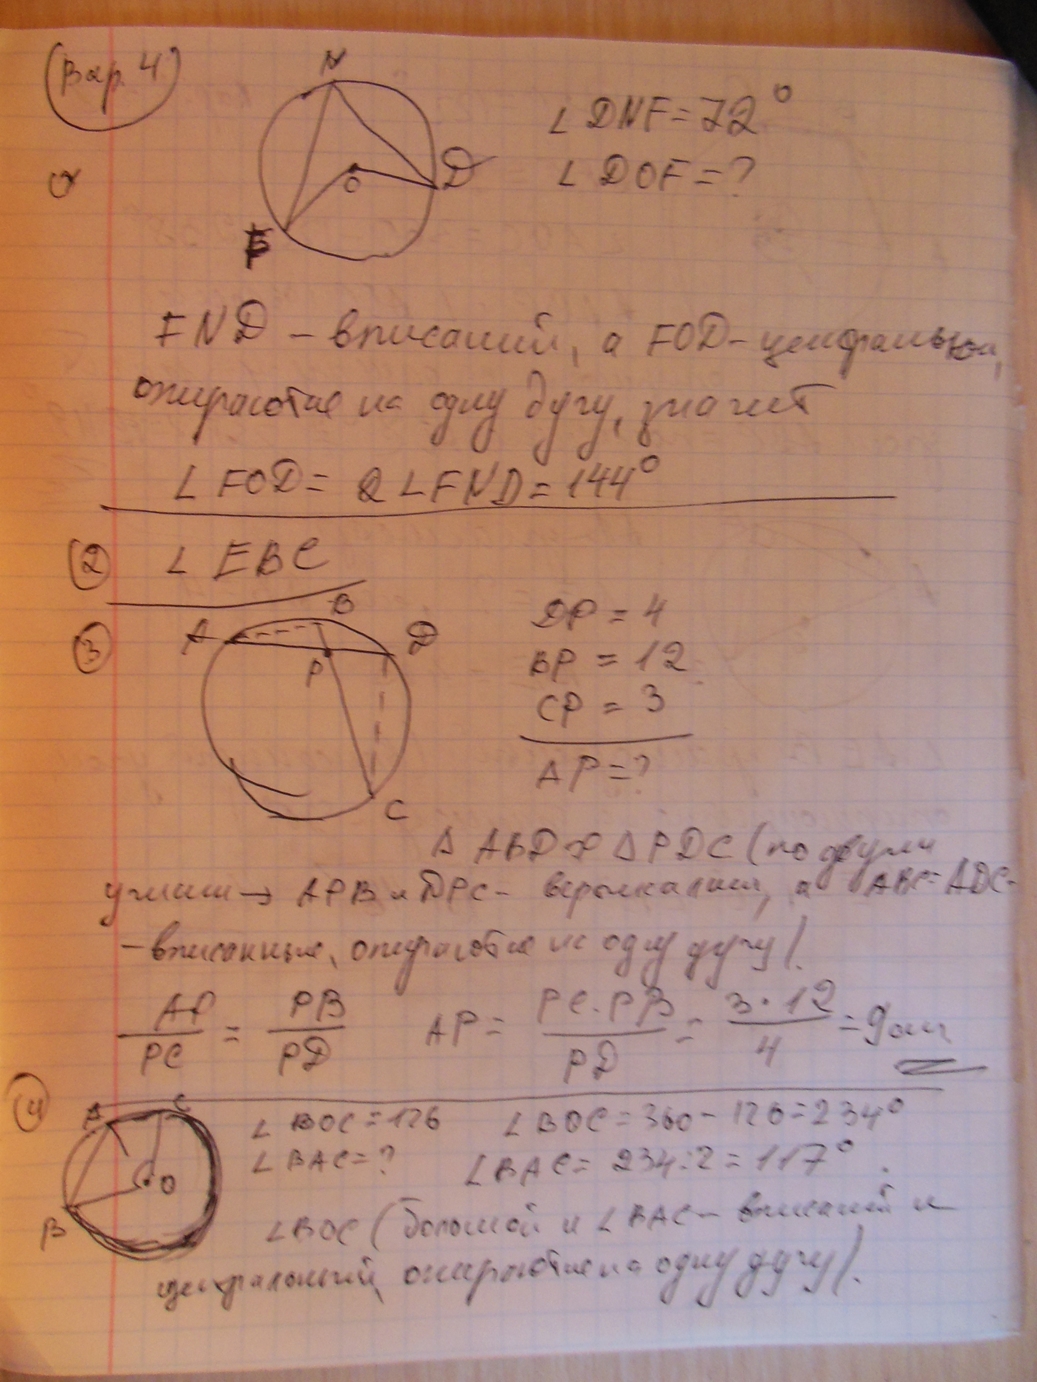 Вар. 4
N
∠ DNF = 72°
∠ DOF = ?
O
D
F
FND – вписаний, а FOD – центральный,
опираются на одну дугу, значит
∠ FOD = 2 ∠ FND = 144°
② ∠ EBC
③
B
A
D
P
C
DP = 4
BP = 12
CP = 3
AP = ?
Δ ABD ∾ Δ PDC (по двум
углам → APB и DPC – вертикальные, а ABC = ADC –
– вписанные, опираются на одну дугу).
AP/PC = PB/PD AP = PC·PB/PD = 3·12/4 = 9
④
A C
O
B
∠ BOC = 126 ∠ BOC = 360 – 126 = 234°
∠ BAC = ? ∠ BAC = 234:2 = 117°.
∠ BOC (большой и ∠ BAC – вписаний и
центральный, опираются на одну дугу).